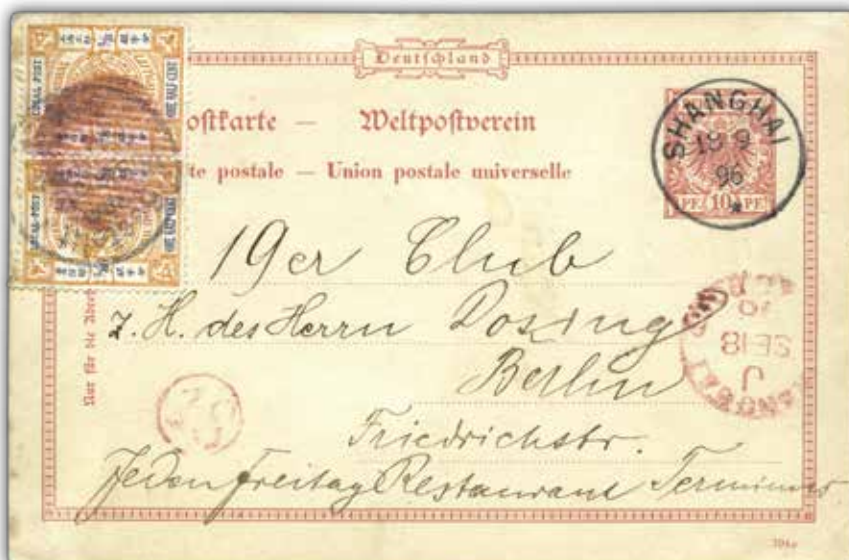 Deutschland
LOCAL POST
LOCAL POST
ostkarte — Weltpostverein
te postale — Union postale universelle
SHANGHAI
19 9
96
PF 10 PF
19er Club
z. H. des Herrn Dosing
Berlin
Friedrichstr.
Jeden Freitag Restaurant Terminus
Nur für die
SE 18
J